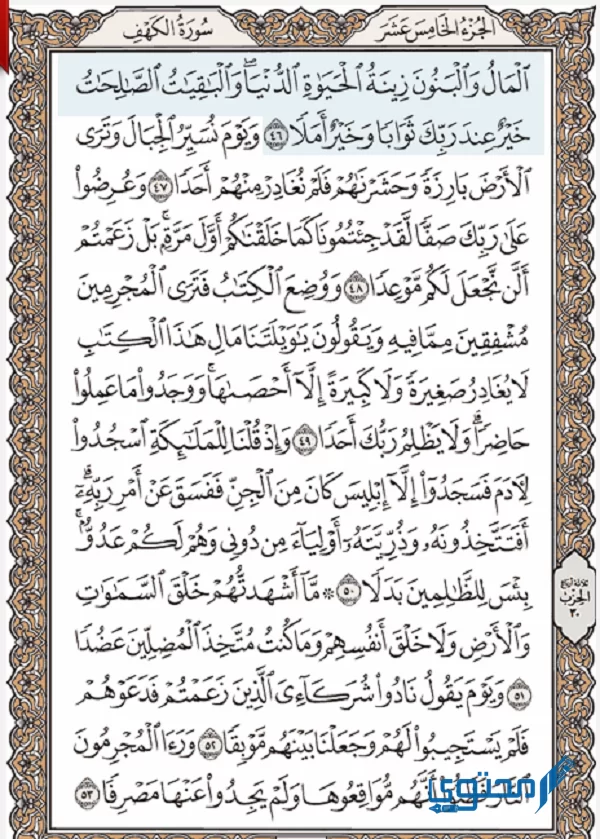 الجزء الخامس عشر
سورة الكهف
ٱلْمَالُ وَٱلْبَنُونَ زِينَةُ ٱلْحَيَوٰةِ ٱلدُّنْيَا ۖ وَٱلْبَـٰقِيَـٰتُ ٱلصَّـٰلِحَـٰتُ
خَيْرٌ عِندَ رَبِّكَ ثَوَابًا وَخَيْرٌ أَمَلًا ٤٦ وَيَوْمَ نُسَيِّرُ ٱلْجِبَالَ وَتَرَى
ٱلْأَرْضَ بَارِزَةً وَحَشَرْنَـٰهُمْ فَلَمْ نُغَادِرْ مِنْهُمْ أَحَدًا ٤٧ وَعُرِضُوا۟
عَلَىٰ رَبِّكَ صَفًّا لَّقَدْ جِئْتُمُونَا كَمَا خَلَقْنَـٰكُمْ أَوَّلَ مَرَّةٍۭ ۚ بَلْ زَعَمْتُمْ
أَلَّن نَّجْعَلَ لَكُم مَّوْعِدًا ٤٨ وَوُضِعَ ٱلْكِتَـٰبُ فَتَرَى ٱلْمُجْرِمِينَ
مُشْفِقِينَ مِمَّا فِيهِ وَيَقُولُونَ يَـٰوَيْلَتَنَا مَالِ هَـٰذَا ٱلْكِتَـٰبِ
لَا يُغَادِرُ صَغِيرَةً وَلَا كَبِيرَةً إِلَّآ أَحْصَىٰهَا ۚ وَوَجَدُوا۟ مَا عَمِلُوا۟
حَاضِرًا ۗ وَلَا يَظْلِمُ رَبُّكَ أَحَدًا ٤٩ وَإِذْ قُلْنَا لِلْمَلَـٰٓئِكَةِ ٱسْجُدُوا۟
لِـَٔادَمَ فَسَجَدُوٓا۟ إِلَّآ إِبْلِيسَ كَانَ مِنَ ٱلْجِنِّ فَفَسَقَ عَنْ أَمْرِ رَبِّهِۦٓ ۗ
أَفَتَتَّخِذُونَهُۥ وَذُرِّيَّتَهُۥٓ أَوْلِيَآءَ مِن دُونِى وَهُمْ لَكُمْ عَدُوٌّۢ ۚ
بِئْسَ لِلظَّـٰلِمِينَ بَدَلًا ٥٠ ۞ مَّآ أَشْهَدتُّهُمْ خَلْقَ ٱلسَّمَـٰوَٰتِ
ثلاثة أرباع
الحزب
٣٠
وَٱلْأَرْضِ وَلَا خَلْقَ أَنفُسِهِمْ وَمَا كُنتُ مُتَّخِذَ ٱلْمُضِلِّينَ عَضُدًا
٥١ وَيَوْمَ يَقُولُ نَادُوا۟ شُرَكَآءِىَ ٱلَّذِينَ زَعَمْتُمْ فَدَعَوْهُمْ
فَلَمْ يَسْتَجِيبُوا۟ لَهُمْ وَجَعَلْنَا بَيْنَهُم مَّوْبِقًا ٥٢ وَرَءَا ٱلْمُجْرِمُونَ
ٱلنَّارَ فَظَنُّوٓا۟ أَنَّهُم مُّوَاقِعُوهَا وَلَمْ يَجِدُوا۟ عَنْهَا مَصْرِفًا ٥٣
محتوى